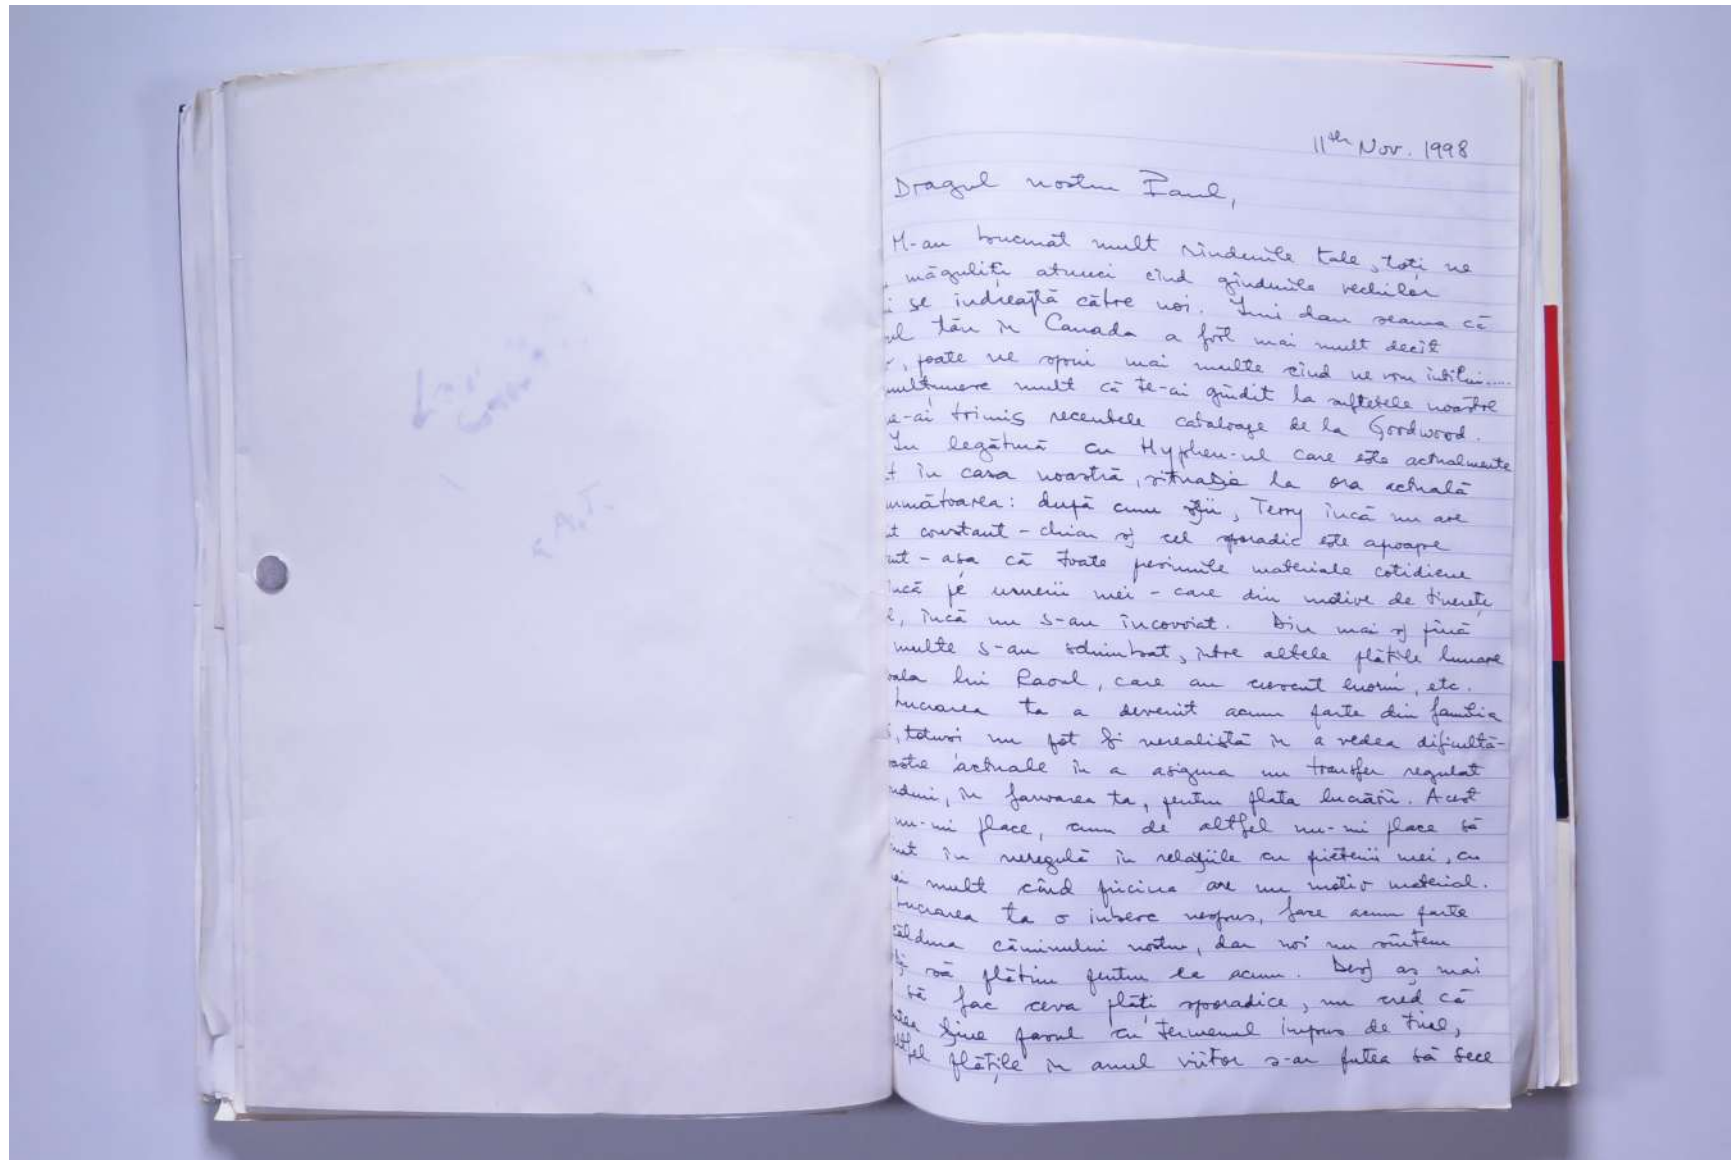 11th Nov. 1998
Dragul nostru Paul,
M-au bucurat mult rîndurile tale, toți ne
măguliți atunci cînd gîndurile vechilor
se îndreaptă către noi. Îmi dau seama că
tău în Canada a fost mai mult decît
, poate ne spui mai multe cînd ne vom întîlni.....
mult că te-ai gîndit la sufletele noastre
e-ai trimis recentele cataloage de la Goodwood.
În legătură cu Hyphen-ul care este actualmente
în casa noastră, situația la ora actuală
următoarea: după cum știi, Terry încă nu are
constant - chiar și cel sporadic este aproape
- așa că toate poverile materiale cotidiene
încă pe umerii mei - care din motive de tinerețe
, încă nu s-au încovoiat. Din mai și pînă
multe s-au schimbat, între altele plățile lunare
lui Raoul, care au crescut enorm, etc.
lucrarea ta a devenit acum parte din familia
, totuși nu pot fi nerealistă în a vedea dificultă-
actuale în a asigura un transfer regulat
, în favoarea ta, pentru plata lucrării. Acest
nu-mi place, cum de altfel nu-mi place să
în neregulă în relațiile cu prietenii mei, cu
mult când pricina are un motiv material.
lucrarea ta o iubesc nespus, face acum parte
căldura căminului nostru, dar noi nu sîntem
să plătim pentru ea acum. Deși aș mai
să fac ceva plăți sporadice, nu cred că
ține pasul cu termenul impus de tine,
altfel plățile în anul viitor s-ar putea să sece